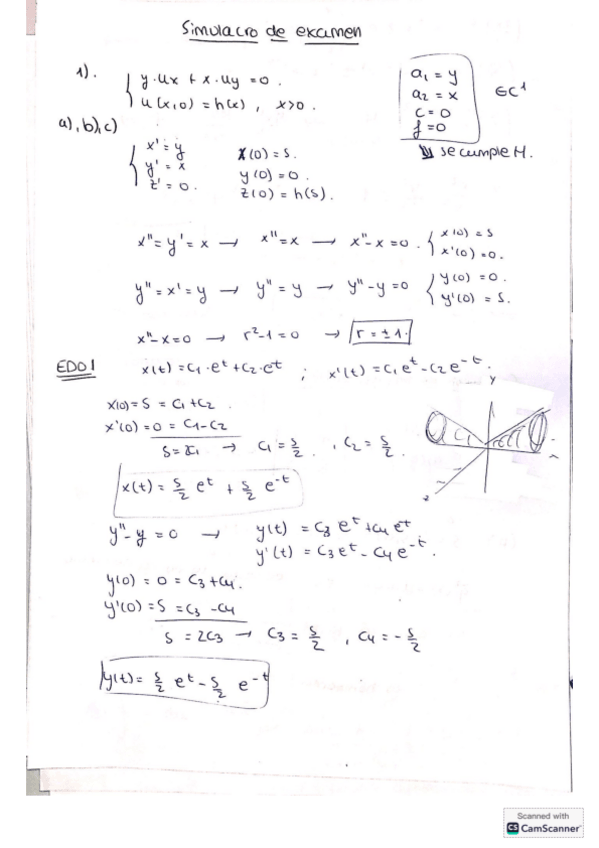 Simulacro de examen
1). { y·ux + x·uy = 0.
u(x,0) = h(x), x>0.
a1 = y
a2 = x
c = 0
f = 0
∈C¹
se cumple H.
a), b), c)
{ x' = y    x(0) = s.
y' = x    y(0) = 0.
z' = 0.    z(0) = h(s).
x'' = y' = x → x'' = x → x''-x = 0. { x(0) = s
x'(0) = 0.
y'' = x' = y → y'' = y → y''-y = 0 { y(0) = 0.
y'(0) = s.
x''-x = 0 → r²-1 = 0 → r = ±1.
EDO1    x(t) = C1·e^t + C2·e^t ; x'(t) = C1 e^t - C2 e^-t.
x(0) = s = C1 + C2.
x'(0) = 0 = C1 - C2
→ C1 = s/2, C2 = s/2.
x(t) = s/2 e^t + s/2 e^-t
y''-y = 0 → y(t) = C3 e^t + C4 e^t
y'(t) = C3 e^t - C4 e^-t.
y(0) = 0 = C3 + C4.
y'(0) = s = C3 - C4
s = 2C3 → C3 = s/2, C4 = -s/2
y(t) = s/2 e^t - s/2 e^-t
Scanned with
CS CamScanner